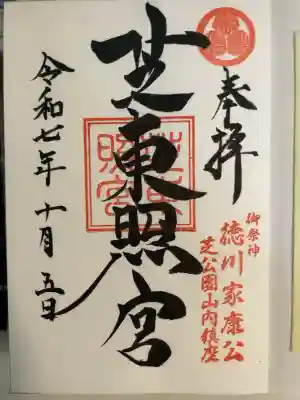 奉拝
御祭神
徳川家康公
芝公園山内鎮座
芝東照宮
令和七年十月五日